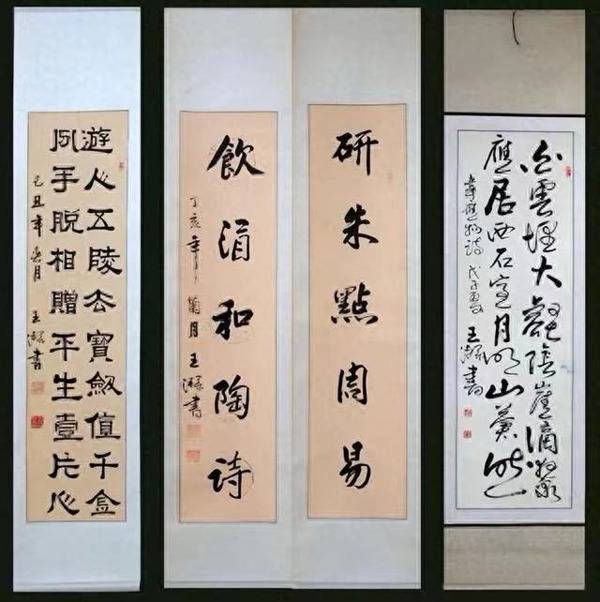 白雲埋大壑陰崖滴夜泉
應居西石室月照山蒼然
韋應物詩 戊子夏 王書
研朱點周易
飲酒和陶詩
丁亥年菊月王書
遊人五陵去寶劍值千金
分手脫相贈平生壹片心
己丑年月 王書